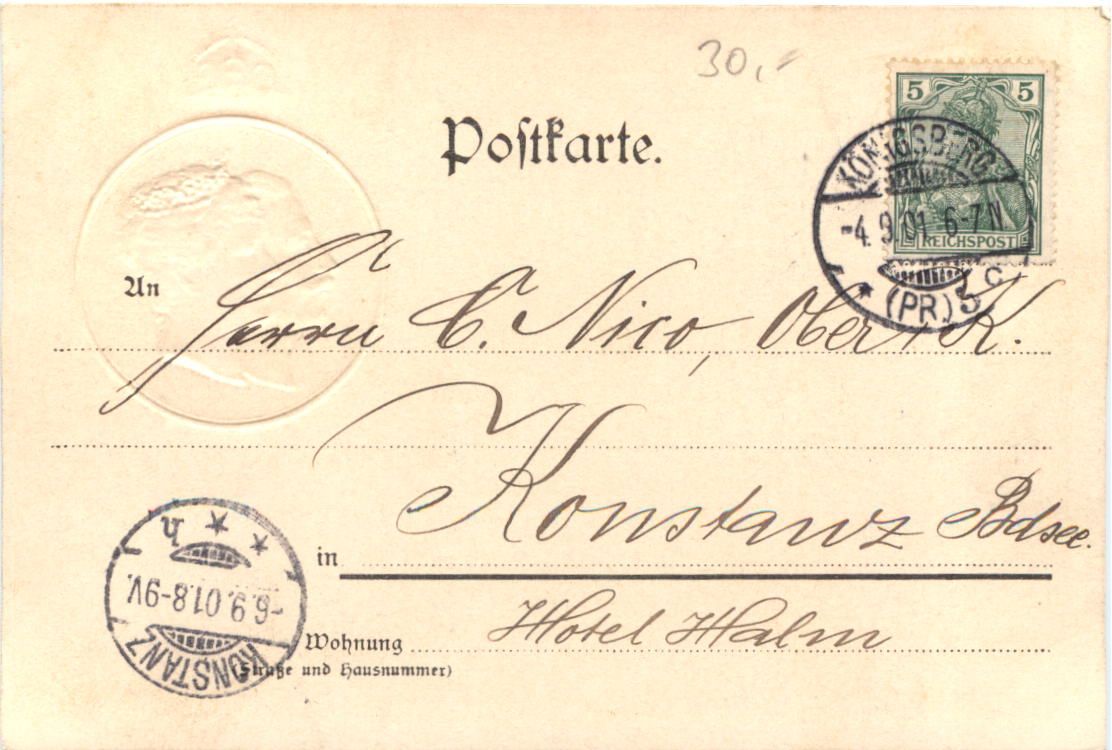 30,-
Postkarte.
5 5
REICHSPOST
KÖNIGSBERG
-4.9.01. 6-7N
* (PR.) 3 c
An
Herrn C. Nico, Ober K.
in Konstanz Bdsee.
Wohnung Hotel Halm
(Straße und Hausnummer)
KONSTANZ
-6.9.01.8-9V.
* * h